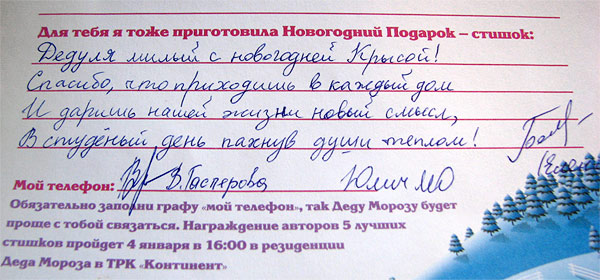 Для тебя я тоже приготовила Новогодний Подарок – стишок:
Дедуля милый с новогодней Крысой!
Спасибо, что приходишь в каждый дом
И даришь нашей жизни новый смысл,
В студёный день пахнув души теплом!
Мой телефон: В. Гасперовы
Обязательно заполни графу «мой телефон», так Деду Морозу будет
проще с тобой связаться. Награждение авторов 5 лучших
стишков пройдет 4 января в 16:00 в резиденции
Деда Мороза в ТРК «Континент»